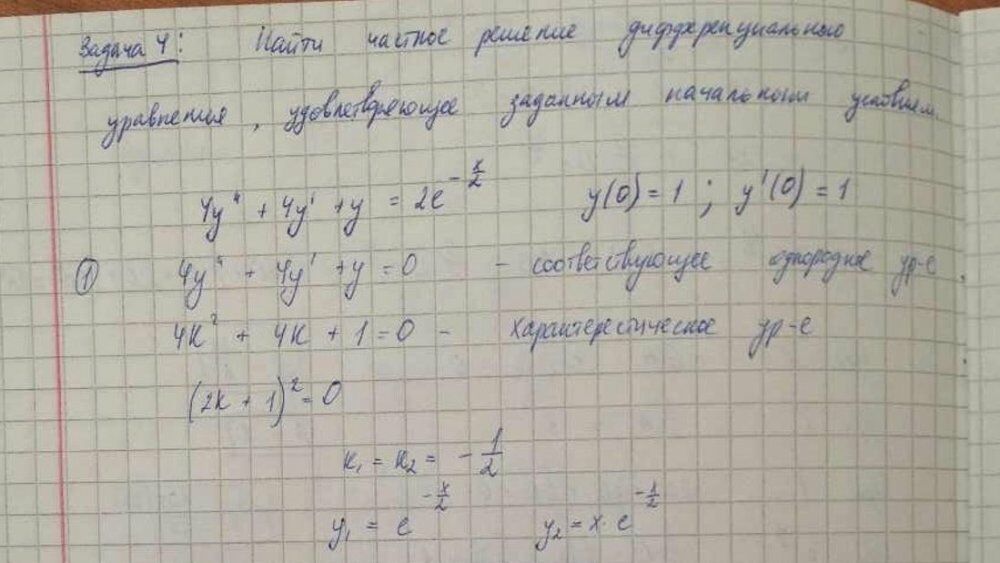 Задача 4: Найти частное решение дифференциального
уравнения, удовлетворяющее заданным начальным условиям.
4y'' + 4y' + y = 2e^{-x/2} y(0) = 1 ; y'(0) = 1
① 4y'' + 4y' + y = 0 - соответствующее однородное ур-е.
4k² + 4k + 1 = 0 - характерестическое ур-е
(2k + 1)² = 0
k₁ = k₂ = -1/2
y₁ = e^{-x/2} y₂ = x · e^{-x/2}